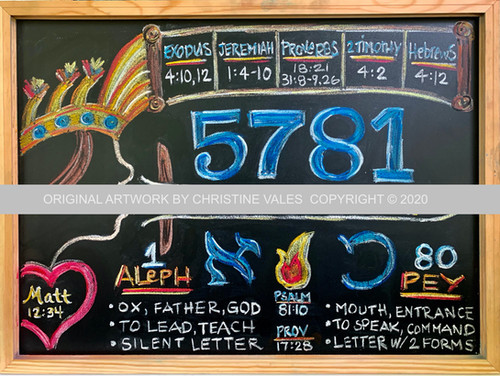 EXODUS JEREMIAH PROVERBS 2 TIMOTHY HEBREWS
4:10,12 1:4-10 18:21 4:2 4:12
31:8-9,26
5781
ORIGINAL ARTWORK BY CHRISTINE VALES COPYRIGHT © 2020
1
ALEPH
א
פ
80
PEY
Matt
12:34
• OX, FATHER, GOD
• TO LEAD, TEACH
• SILENT LETTER
PSALM
81:10
PROV
17:28
• MOUTH, ENTRANCE
• TO SPEAK, COMMAND
• LETTER W/ 2 FORMS